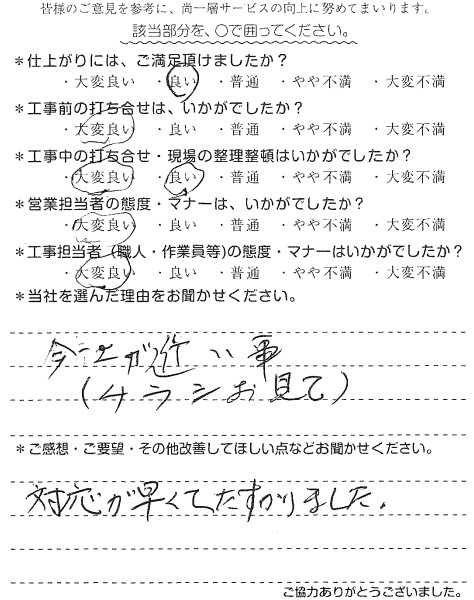 皆様のご意見を参考に、尚一層サービスの向上に努めてまいります。
該当部分を、○で囲ってください。
＊仕上がりには、ご満足頂けましたか？
・大変良い ・良い ・普通 ・やや不満 ・大変不満
＊工事前の打ち合せは、いかがでしたか？
・大変良い ・良い ・普通 ・やや不満 ・大変不満
＊工事中の打ち合せ・現場の整理整頓はいかがでしたか？
・大変良い ・良い ・普通 ・やや不満 ・大変不満
＊営業担当者の態度・マナーは、いかがでしたか？
・大変良い ・良い ・普通 ・やや不満 ・大変不満
＊工事担当者（職人・作業員等）の態度・マナーはいかがでしたか？
・大変良い ・良い ・普通 ・やや不満 ・大変不満
＊当社を選んだ理由をお聞かせください。
会社が近い事
（チラシお見て）
＊ご感想・ご要望・その他改善してほしい点などお聞かせください。
対応が早くてたすかりました。
ご協力ありがとうございました。